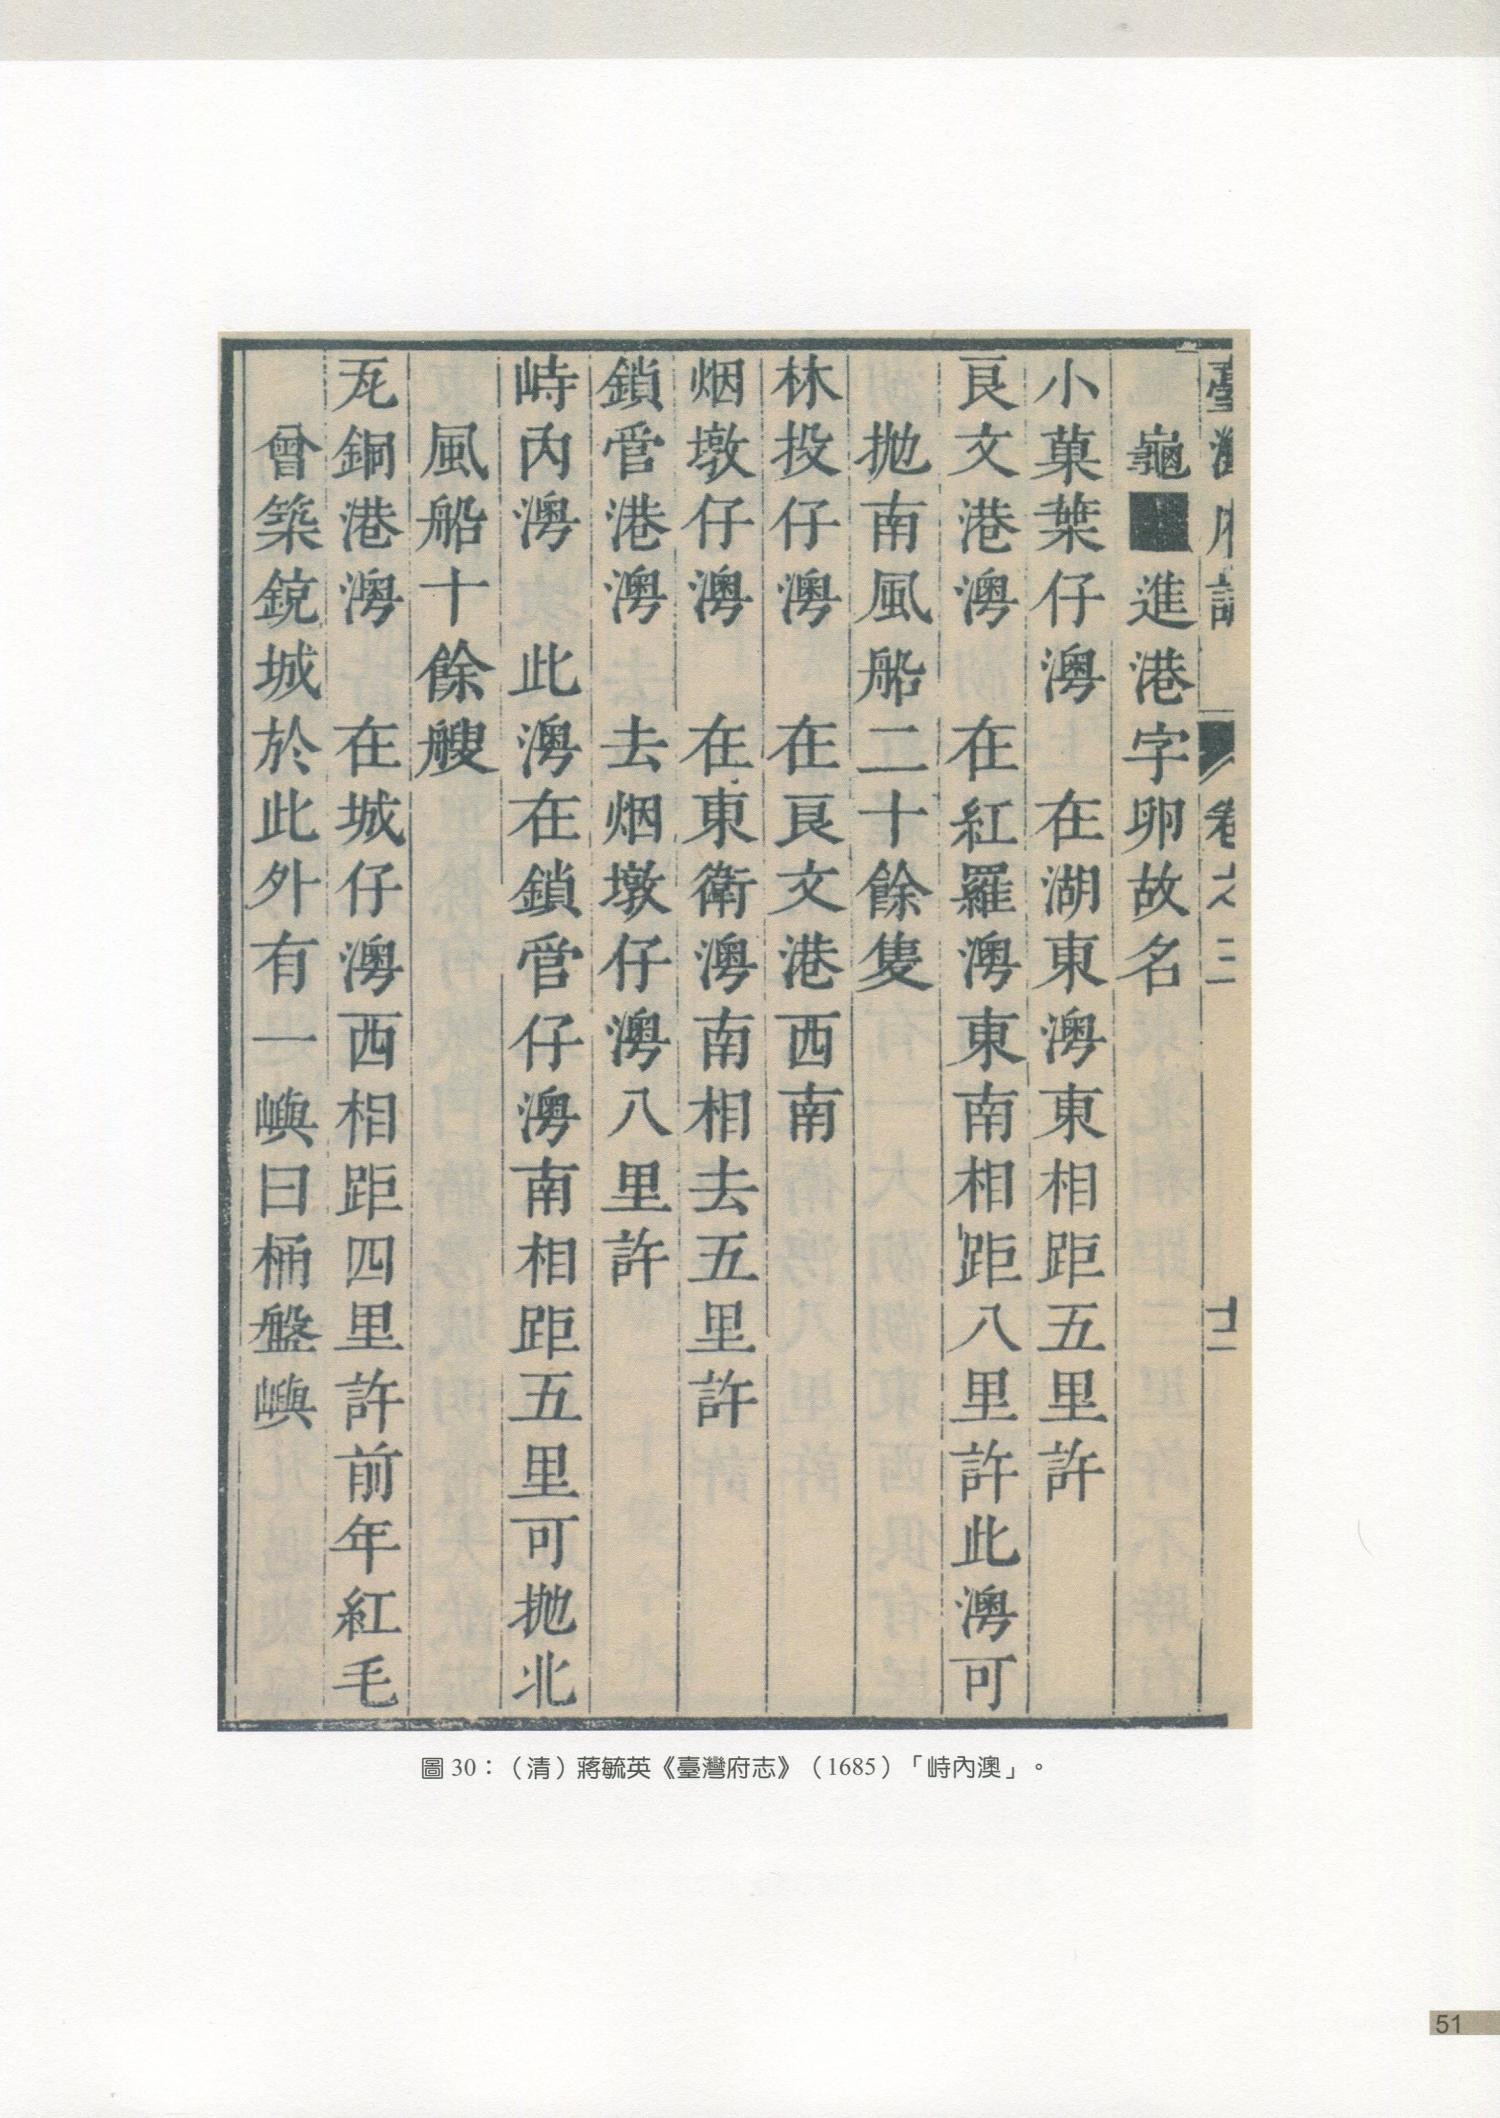 臺灣府志 卷之三 十二
龜■進港字卵故名
小菓葉仔澳 在湖東澳東相距五里許
良文港澳 在紅羅澳東南相距八里許此澳可
拋南風船二十餘隻
林投仔澳 在良文港西南
烟墩仔澳 在東衛澳南相去五里許
鎖管港澳 去烟墩仔澳八里許
峙內澳 此澳在鎖管仔澳南相距五里可拋北
風船十餘艘
瓦銅港澳 在城仔澳西相距四里許前年紅毛
曾築銃城於此外有一嶼曰桶盤嶼
圖 30：（清）蔣毓英《臺灣府志》（1685）「峙內澳」。
51